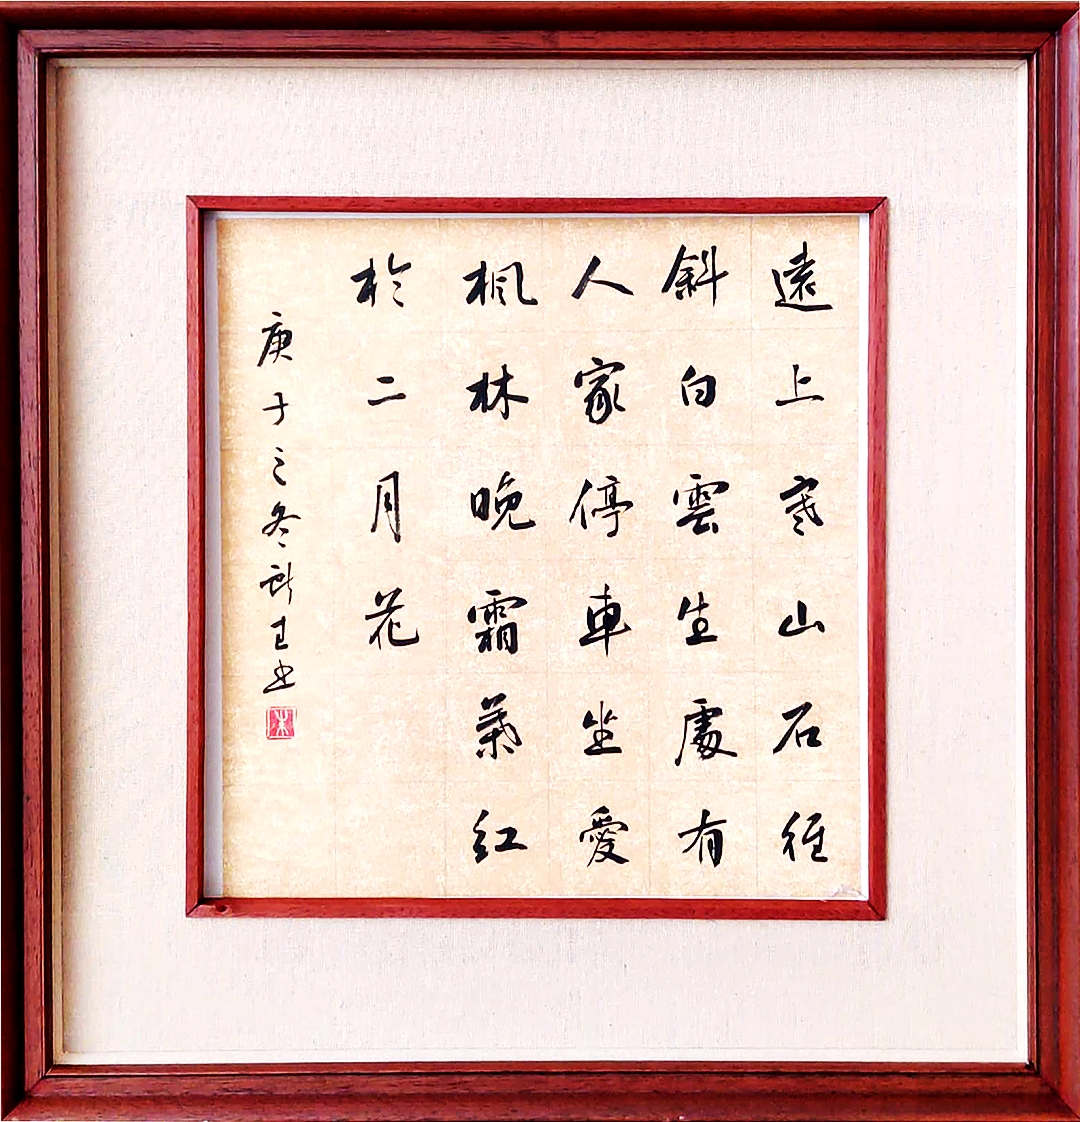 遠上寒山石徑
斜白雲生處有
人家停車坐愛
楓林晚霜葉紅
於二月花
庚子之冬书